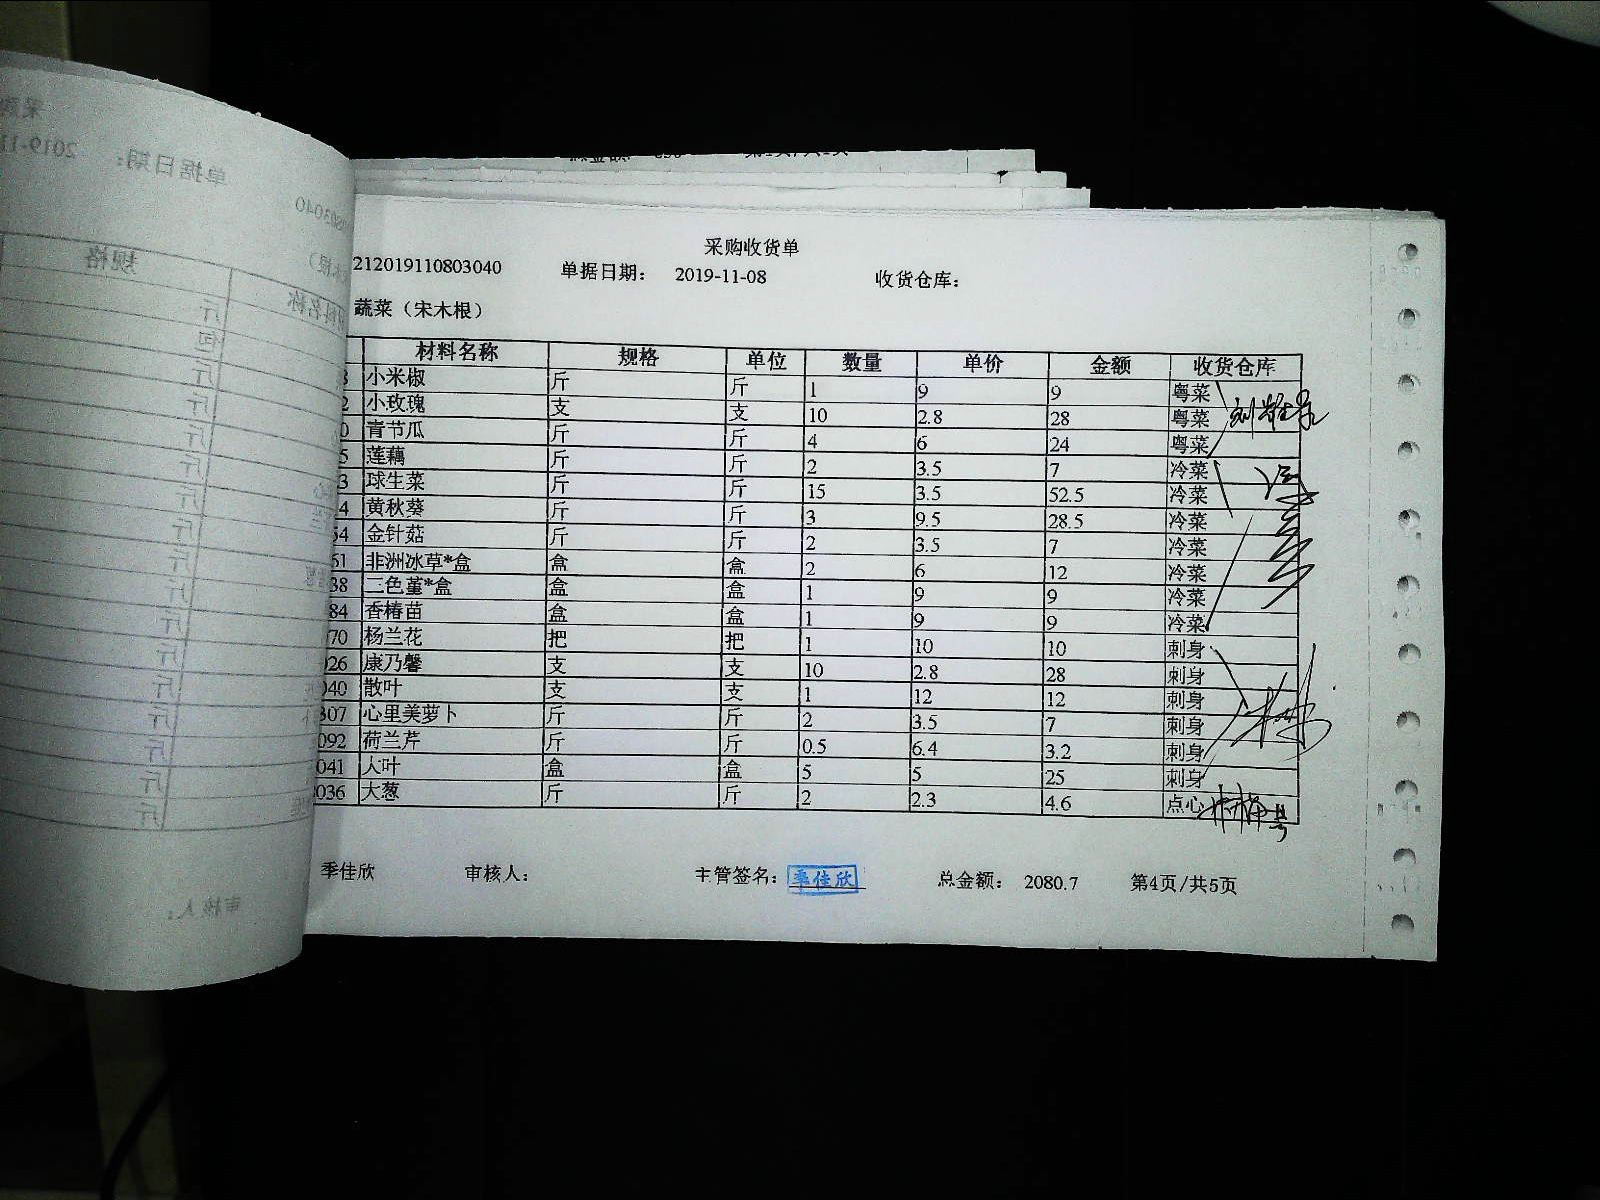 采购收货单
212019110803040 单据日期： 2019-11-08 收货仓库：
蔬菜（宋木根）
材料名称 规格 单位 数量 单价 金额 收货仓库
8 小米椒 斤 斤 1 9 9 粤菜
2 小玫瑰 支 支 10 2.8 28 粤菜
0 青节瓜 斤 斤 4 6 24 粤菜
5 莲藕 斤 斤 2 3.5 7 冷菜
3 球生菜 斤 斤 15 3.5 52.5 冷菜
4 黄秋葵 斤 斤 3 9.5 28.5 冷菜
54 金针菇 斤 斤 2 3.5 7 冷菜
51 非洲冰草*盒 盒 盒 2 6 12 冷菜
38 三色堇*盒 盒 盒 1 9 9 冷菜
84 香椿苗 盒 盒 1 9 9 冷菜
070 杨兰花 把 把 1 10 10 刺身
026 康乃馨 支 支 10 2.8 28 刺身
040 散叶 支 支 1 12 12 刺身
307 心里美萝卜 斤 斤 2 3.5 7 刺身
092 荷兰芹 斤 斤 0.5 6.4 3.2 刺身
041 大叶 盒 盒 5 5 25 刺身
036 大葱 斤 斤 2 2.3 4.6 点心
季佳欣 审核人： 主管签名： 季佳欣 总金额： 2080.7 第4页/共5页